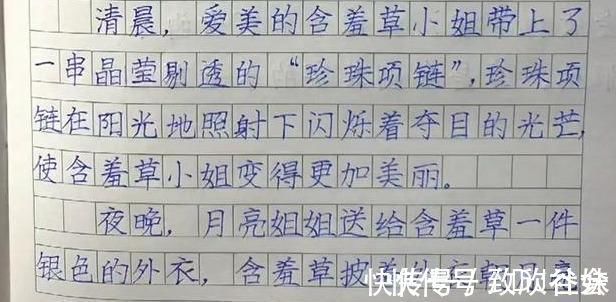 清晨，爱美的含羞草小姐带上了
一串晶莹剔透的“珍珠项链”，珍珠项
链在阳光地照射下闪烁着夺目的光芒，
使含羞草小姐变得更加美丽。
夜晚，月亮姐姐送给含羞草一件
银色的外衣，含羞草披着
快传号